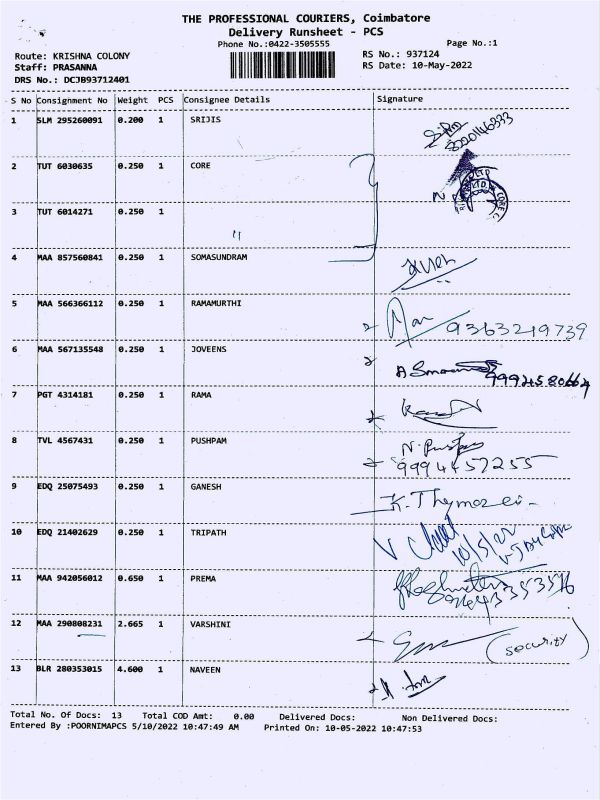 THE PROFESSIONAL COURIERS, Coimbatore
Delivery Runsheet - PCS
Phone No.:0422-3505555
Page No.:1
Route: KRISHNA COLONY
RS No.: 937124
Staff: PRASANNA
RS Date: 10-May-2022
DRS No.: DCJB93712401
S No Consignment No Weight PCS Consignee Details Signature
1 SLM 295260091 0.200 1 SRIJIS
2 TUT 6030635 0.250 1 CORE
3 TUT 6014271 0.250 1 "
4 MAA 857560841 0.250 1 SOMASUNDRAM
5 MAA 566366112 0.250 1 RAMAMURTHI 9363219739
6 MAA 567135548 0.250 1 JOVEENS
7 PGT 4314181 0.250 1 RAMA
8 TVL 4567431 0.250 1 PUSHPAM
9994457255
9 EDQ 25075493 0.250 1 GANESH
10 EDQ 21402629 0.250 1 TRIPATH 10/5/22
11 MAA 942056012 0.650 1 PREMA
12 MAA 290808231 2.665 1 VARSHINI (security)
13 BLR 280353015 4.600 1 NAVEEN
Total No. Of Docs: 13 Total COD Amt: 0.00 Delivered Docs: Non Delivered Docs:
Entered By :POORNIMAPCS 5/10/2022 10:47:49 AM Printed On: 10-05-2022 10:47:53